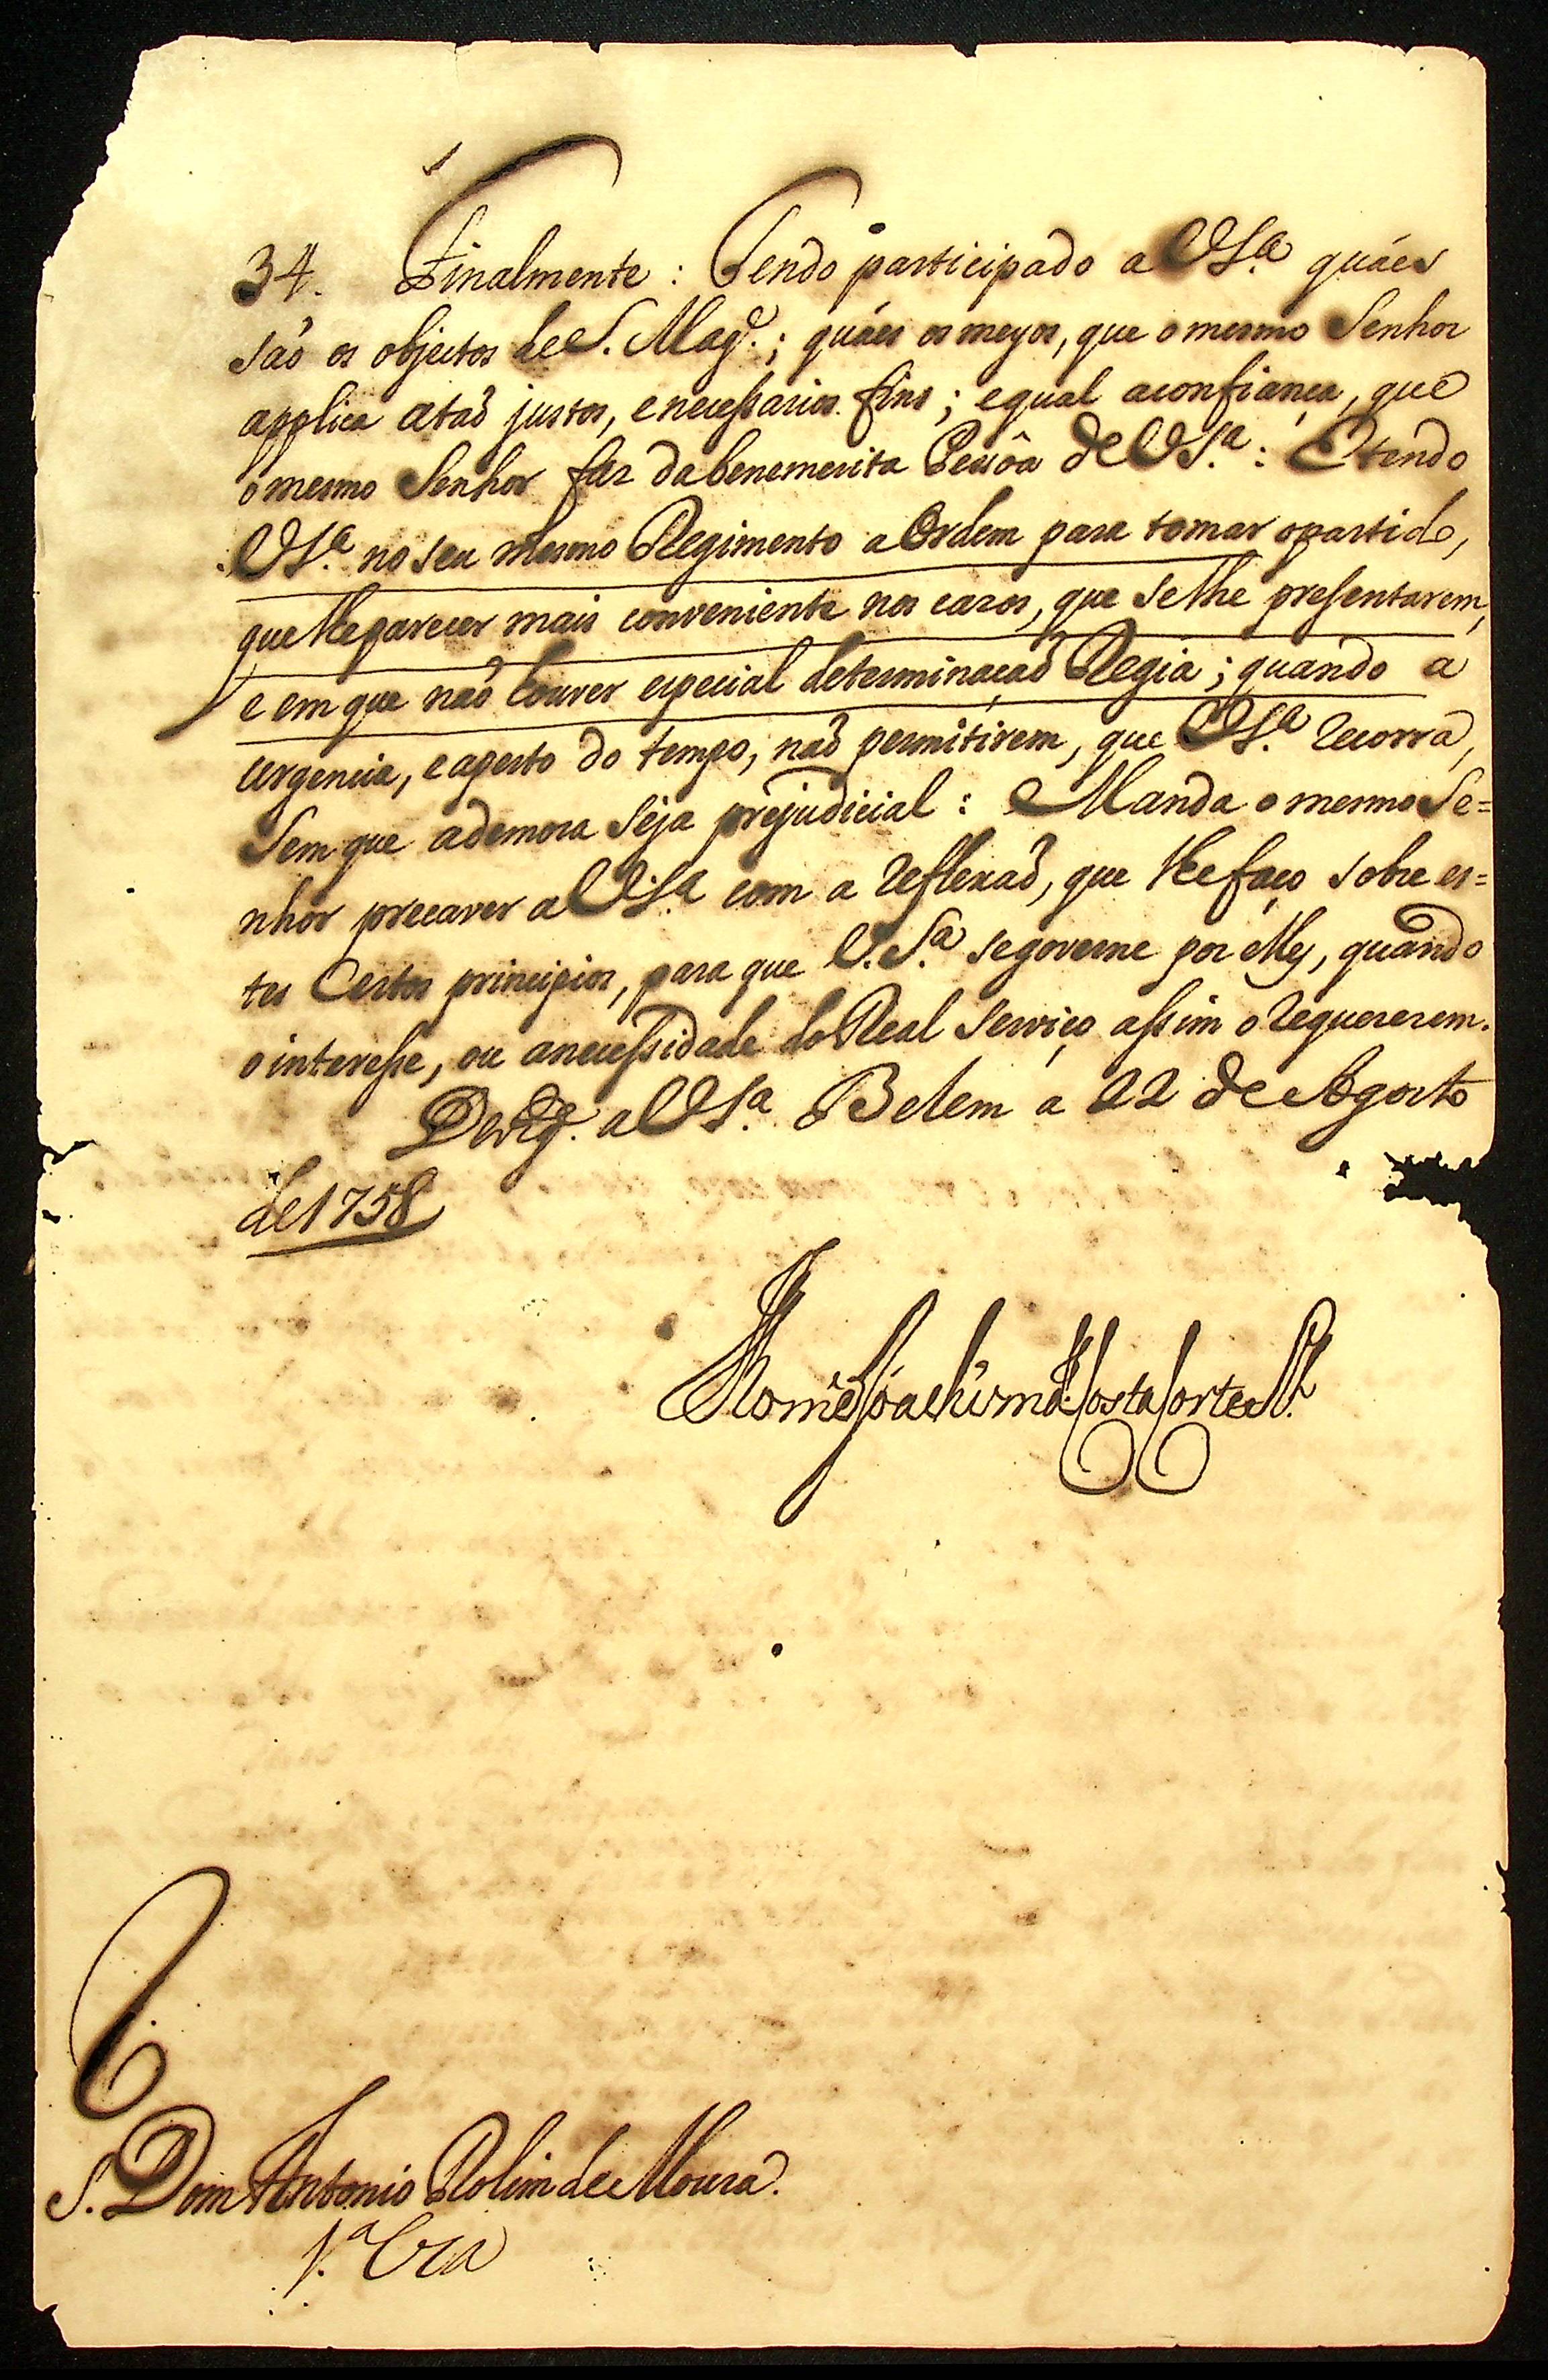 34. Finalmente: Tendo participado a VS.ª quáes
são os objectos de S. Mag.e; quáes os meyos, que o mesmo Senhor
applica a taõ justos, e necessarios fins; e qual a confiança, que
o mesmo Senhor faz da benemerita Pessôa de VS.ª: E tendo
VS.ª no seu mesmo Regimento a Ordem para tomar o partido,
que lhe parecer mais conveniente nos cazos, que se lhe presentarem,
e em que naõ houver especial determinaçaõ Regia; quando a
urgencia, e aperto do tempo, naõ permitirem, que VS.ª recorra,
sem que a demora seja prejudicial: Manda o mesmo Se=
nhor precaver a VS.ª com a reflexaõ, que lhe faço sobre es=
tes certos principios, para que V.S.ª se governe por elles, quando
o interesse, ou a necessidade do Real Serviço assim o requererem.
Deos g.e a VS.ª Belem a 22 de Agosto
de 1758
Thomé Joachim da Costa Corte R.l
S. Dom Antonio Rolim de Moura.
1.ª Via